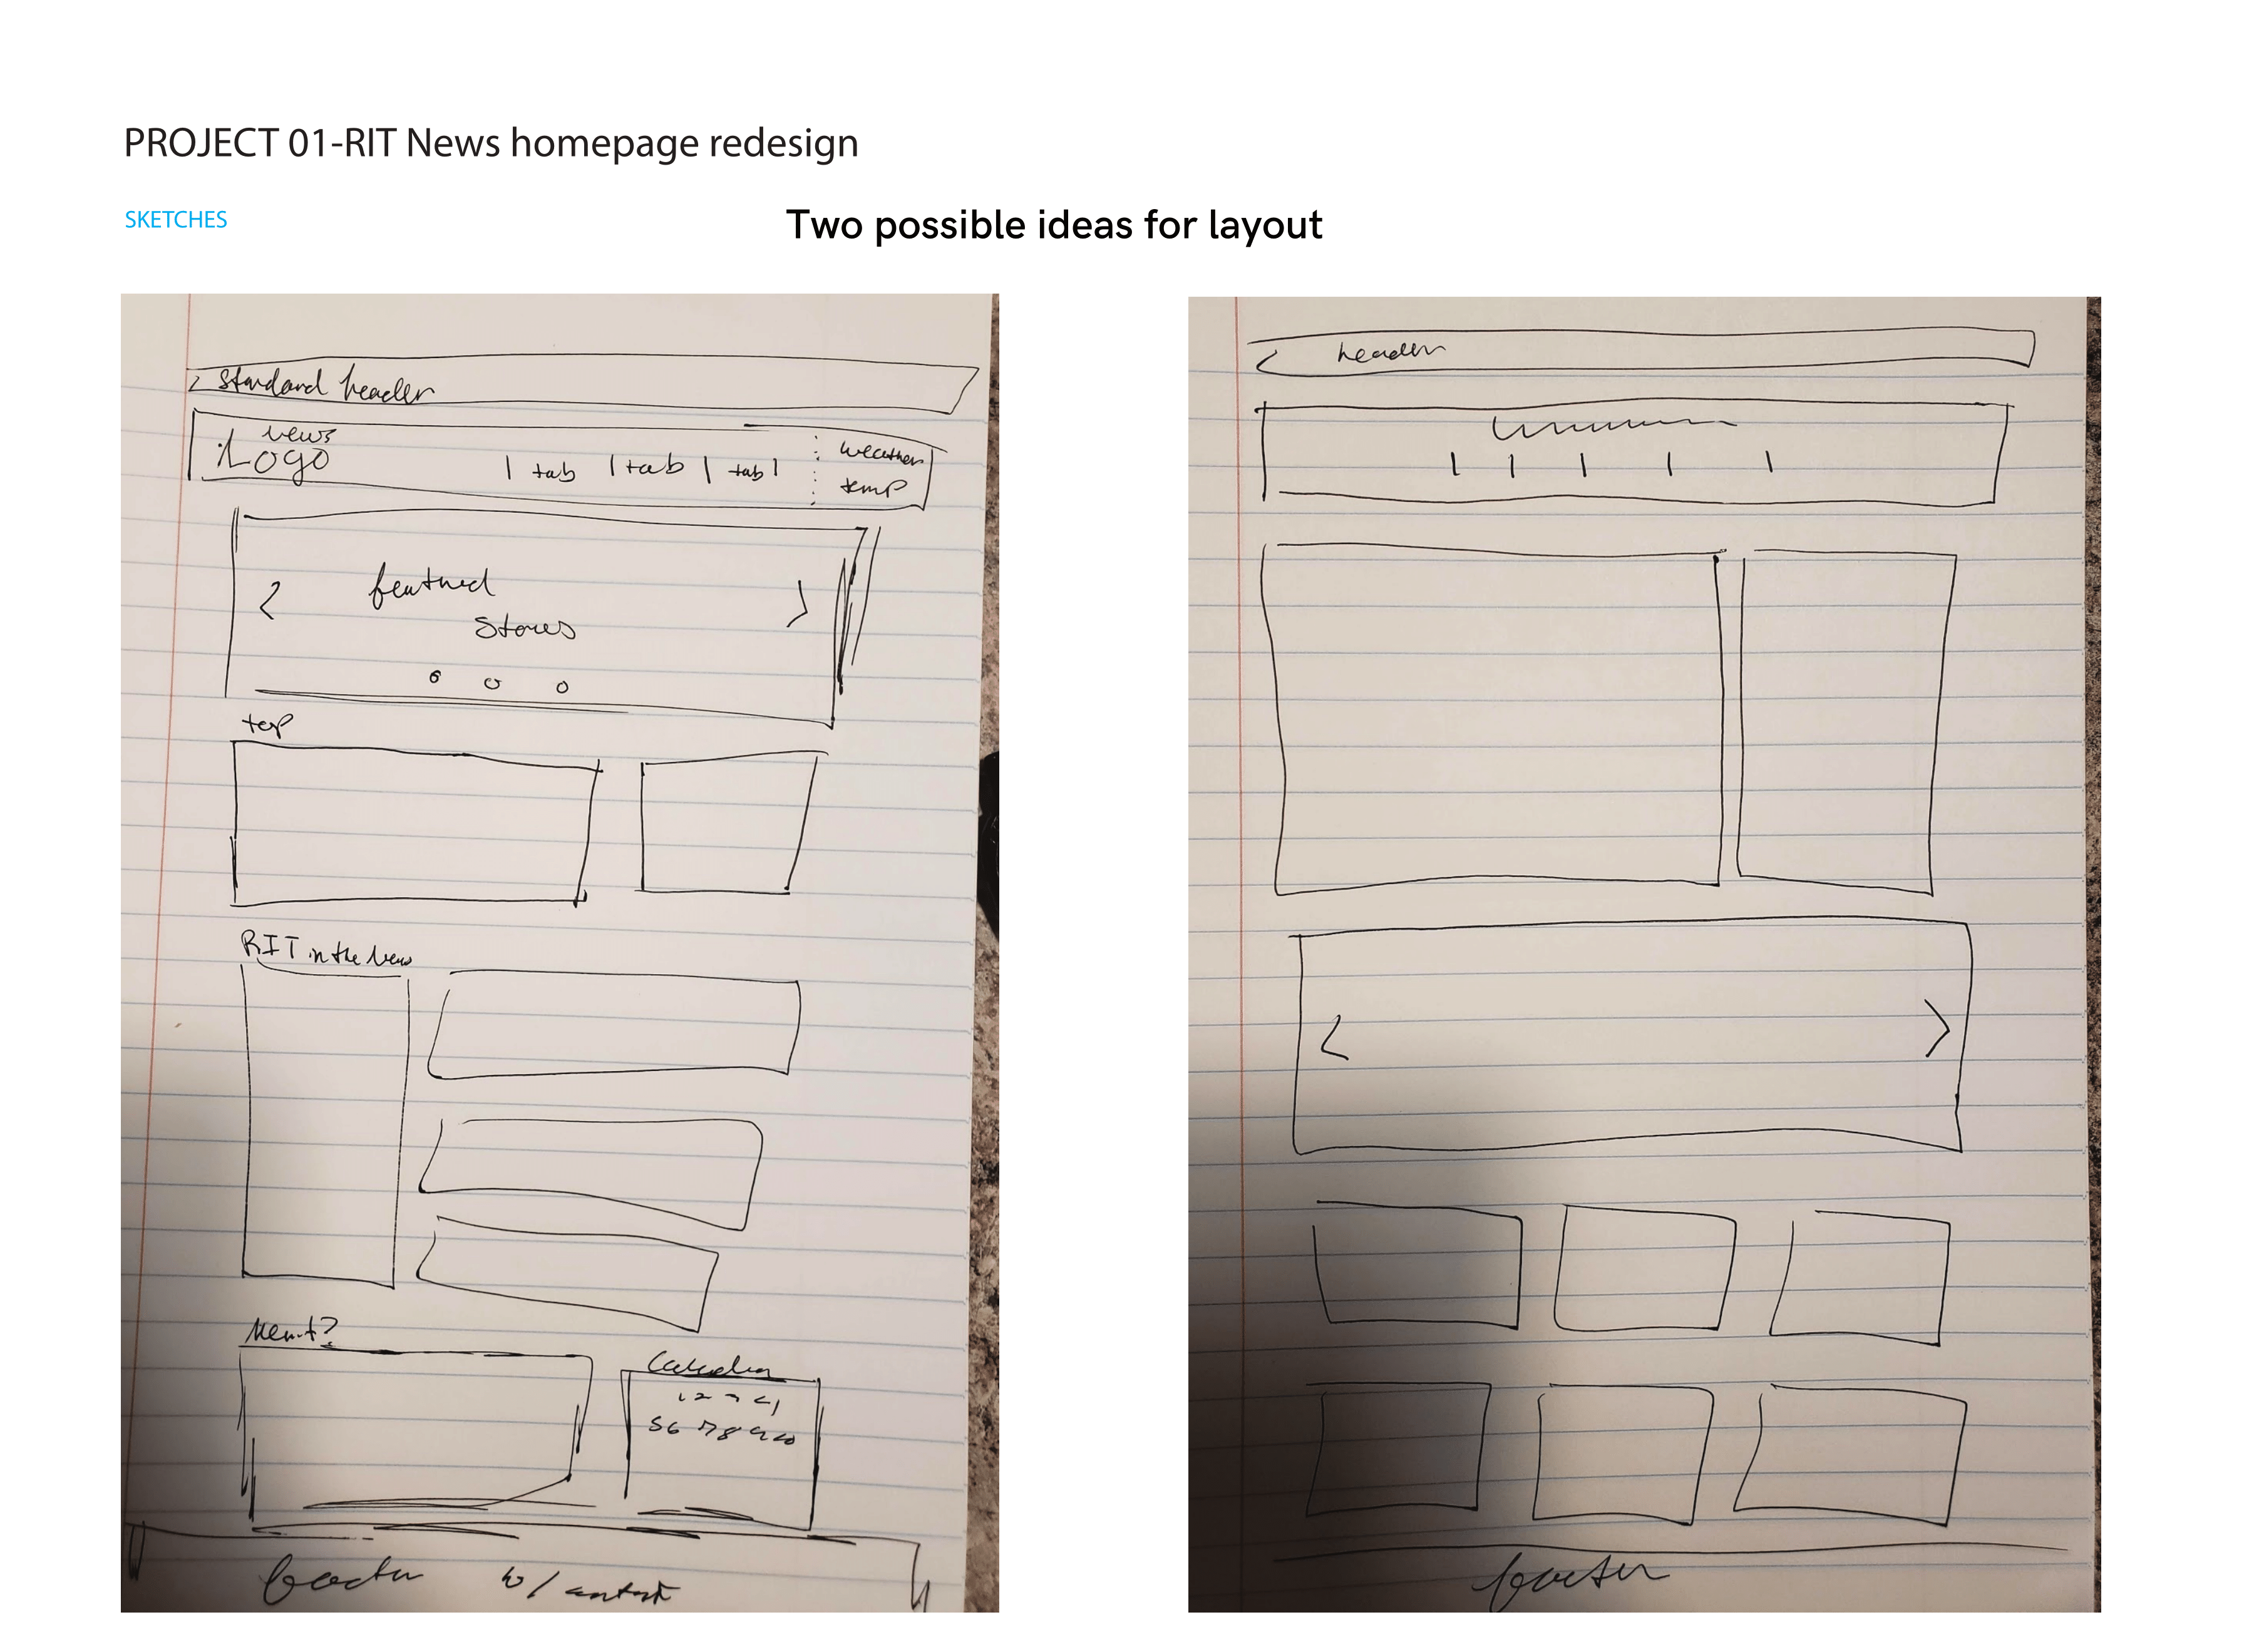 PROJECT 01-RIT News homepage redesign
SKETCHES
Two possible ideas for layout
standard header
news
Logo
| tab | tab | tab |
weather
temp
< featured >
stories
top
RIT in the News
Calendar
1 2 3 4
5 6 7 8 9 10
footer w/
header
< >
footer